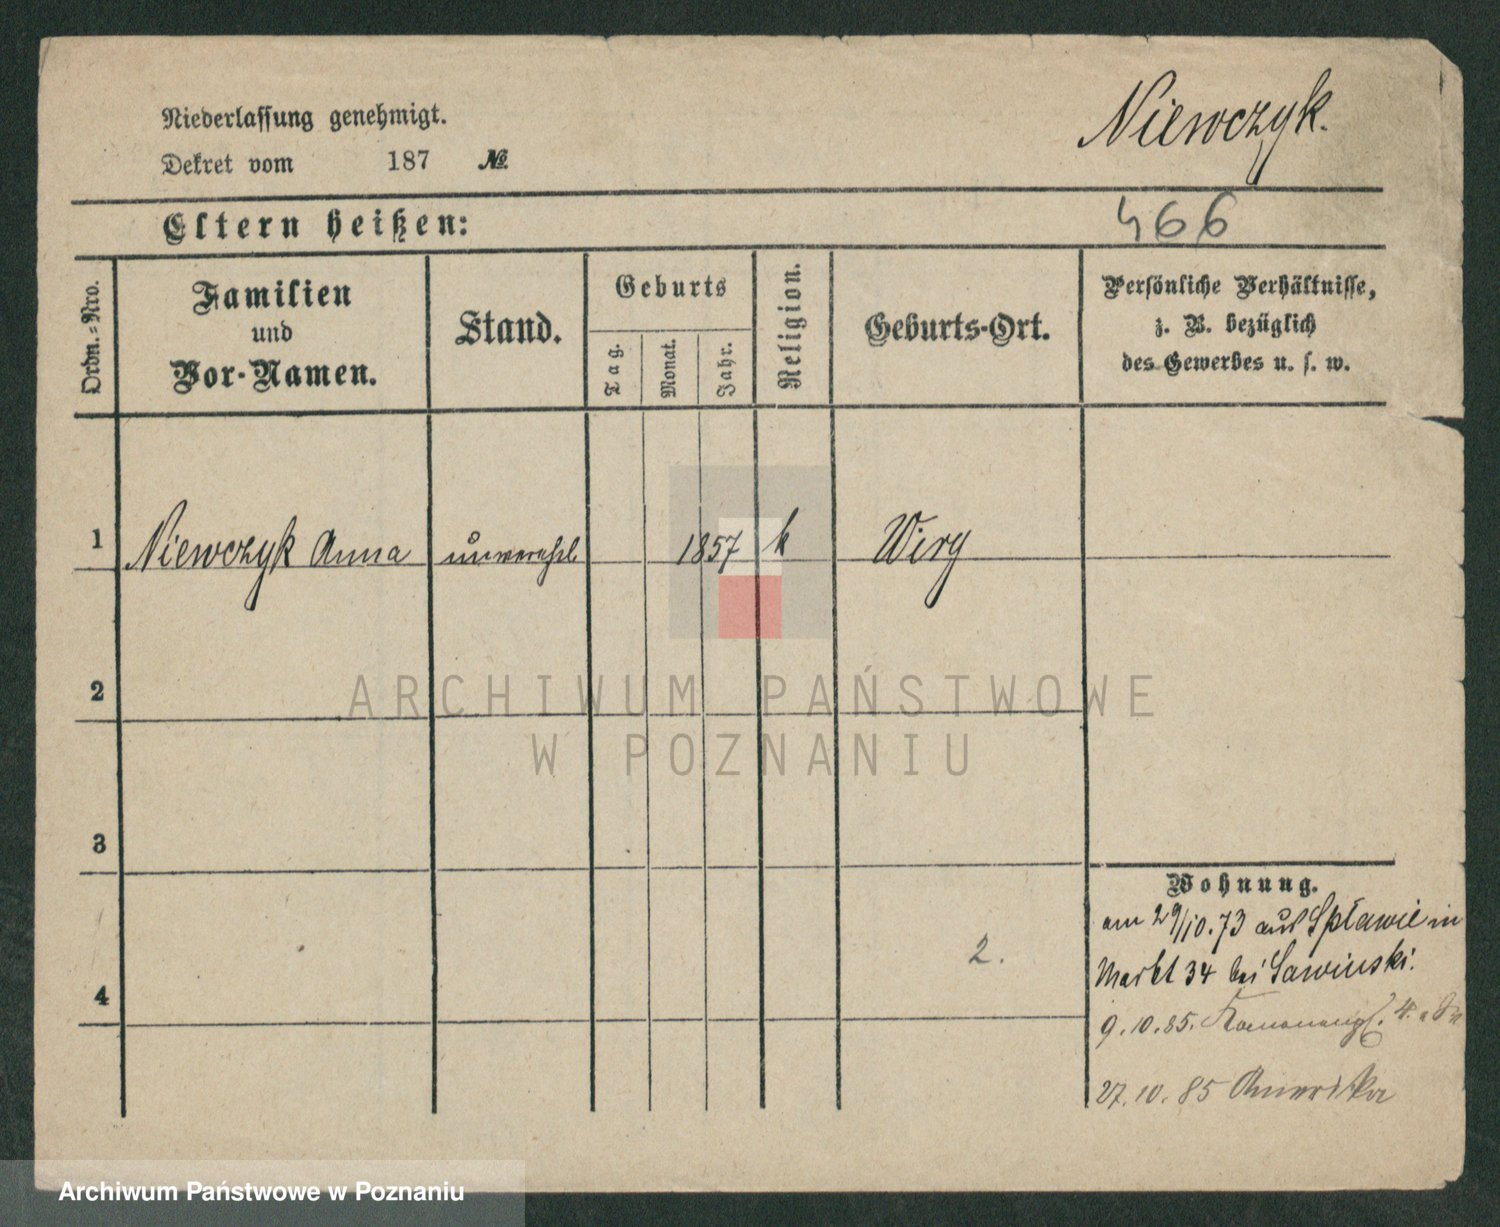 Niewczyk.
Niederlassung genehmigt.
Dekret vom 187 №
Eltern heißen:
466
Ordn.-Nro.
Familien
und
Vor-Namen.
Stand.
Geburts
Tag.
Monat.
Jahr.
Religion.
Geburts-Ort.
Persönliche Verhältnisse,
z. B. bezüglich
des Gewerbes u. s. w.
1 Niewczyk Anna unverehel 1857 k Wiry
2
3
4
Wohnung.
am 29/10.73 aus Spławie in
Markt 34 bei Sawinski.
9.10.85. 4.
27.10.85 Amerika
2.
ARCHIWUM PAŃSTWOWE
W POZNANIU
Archiwum Państwowe w Poznaniu